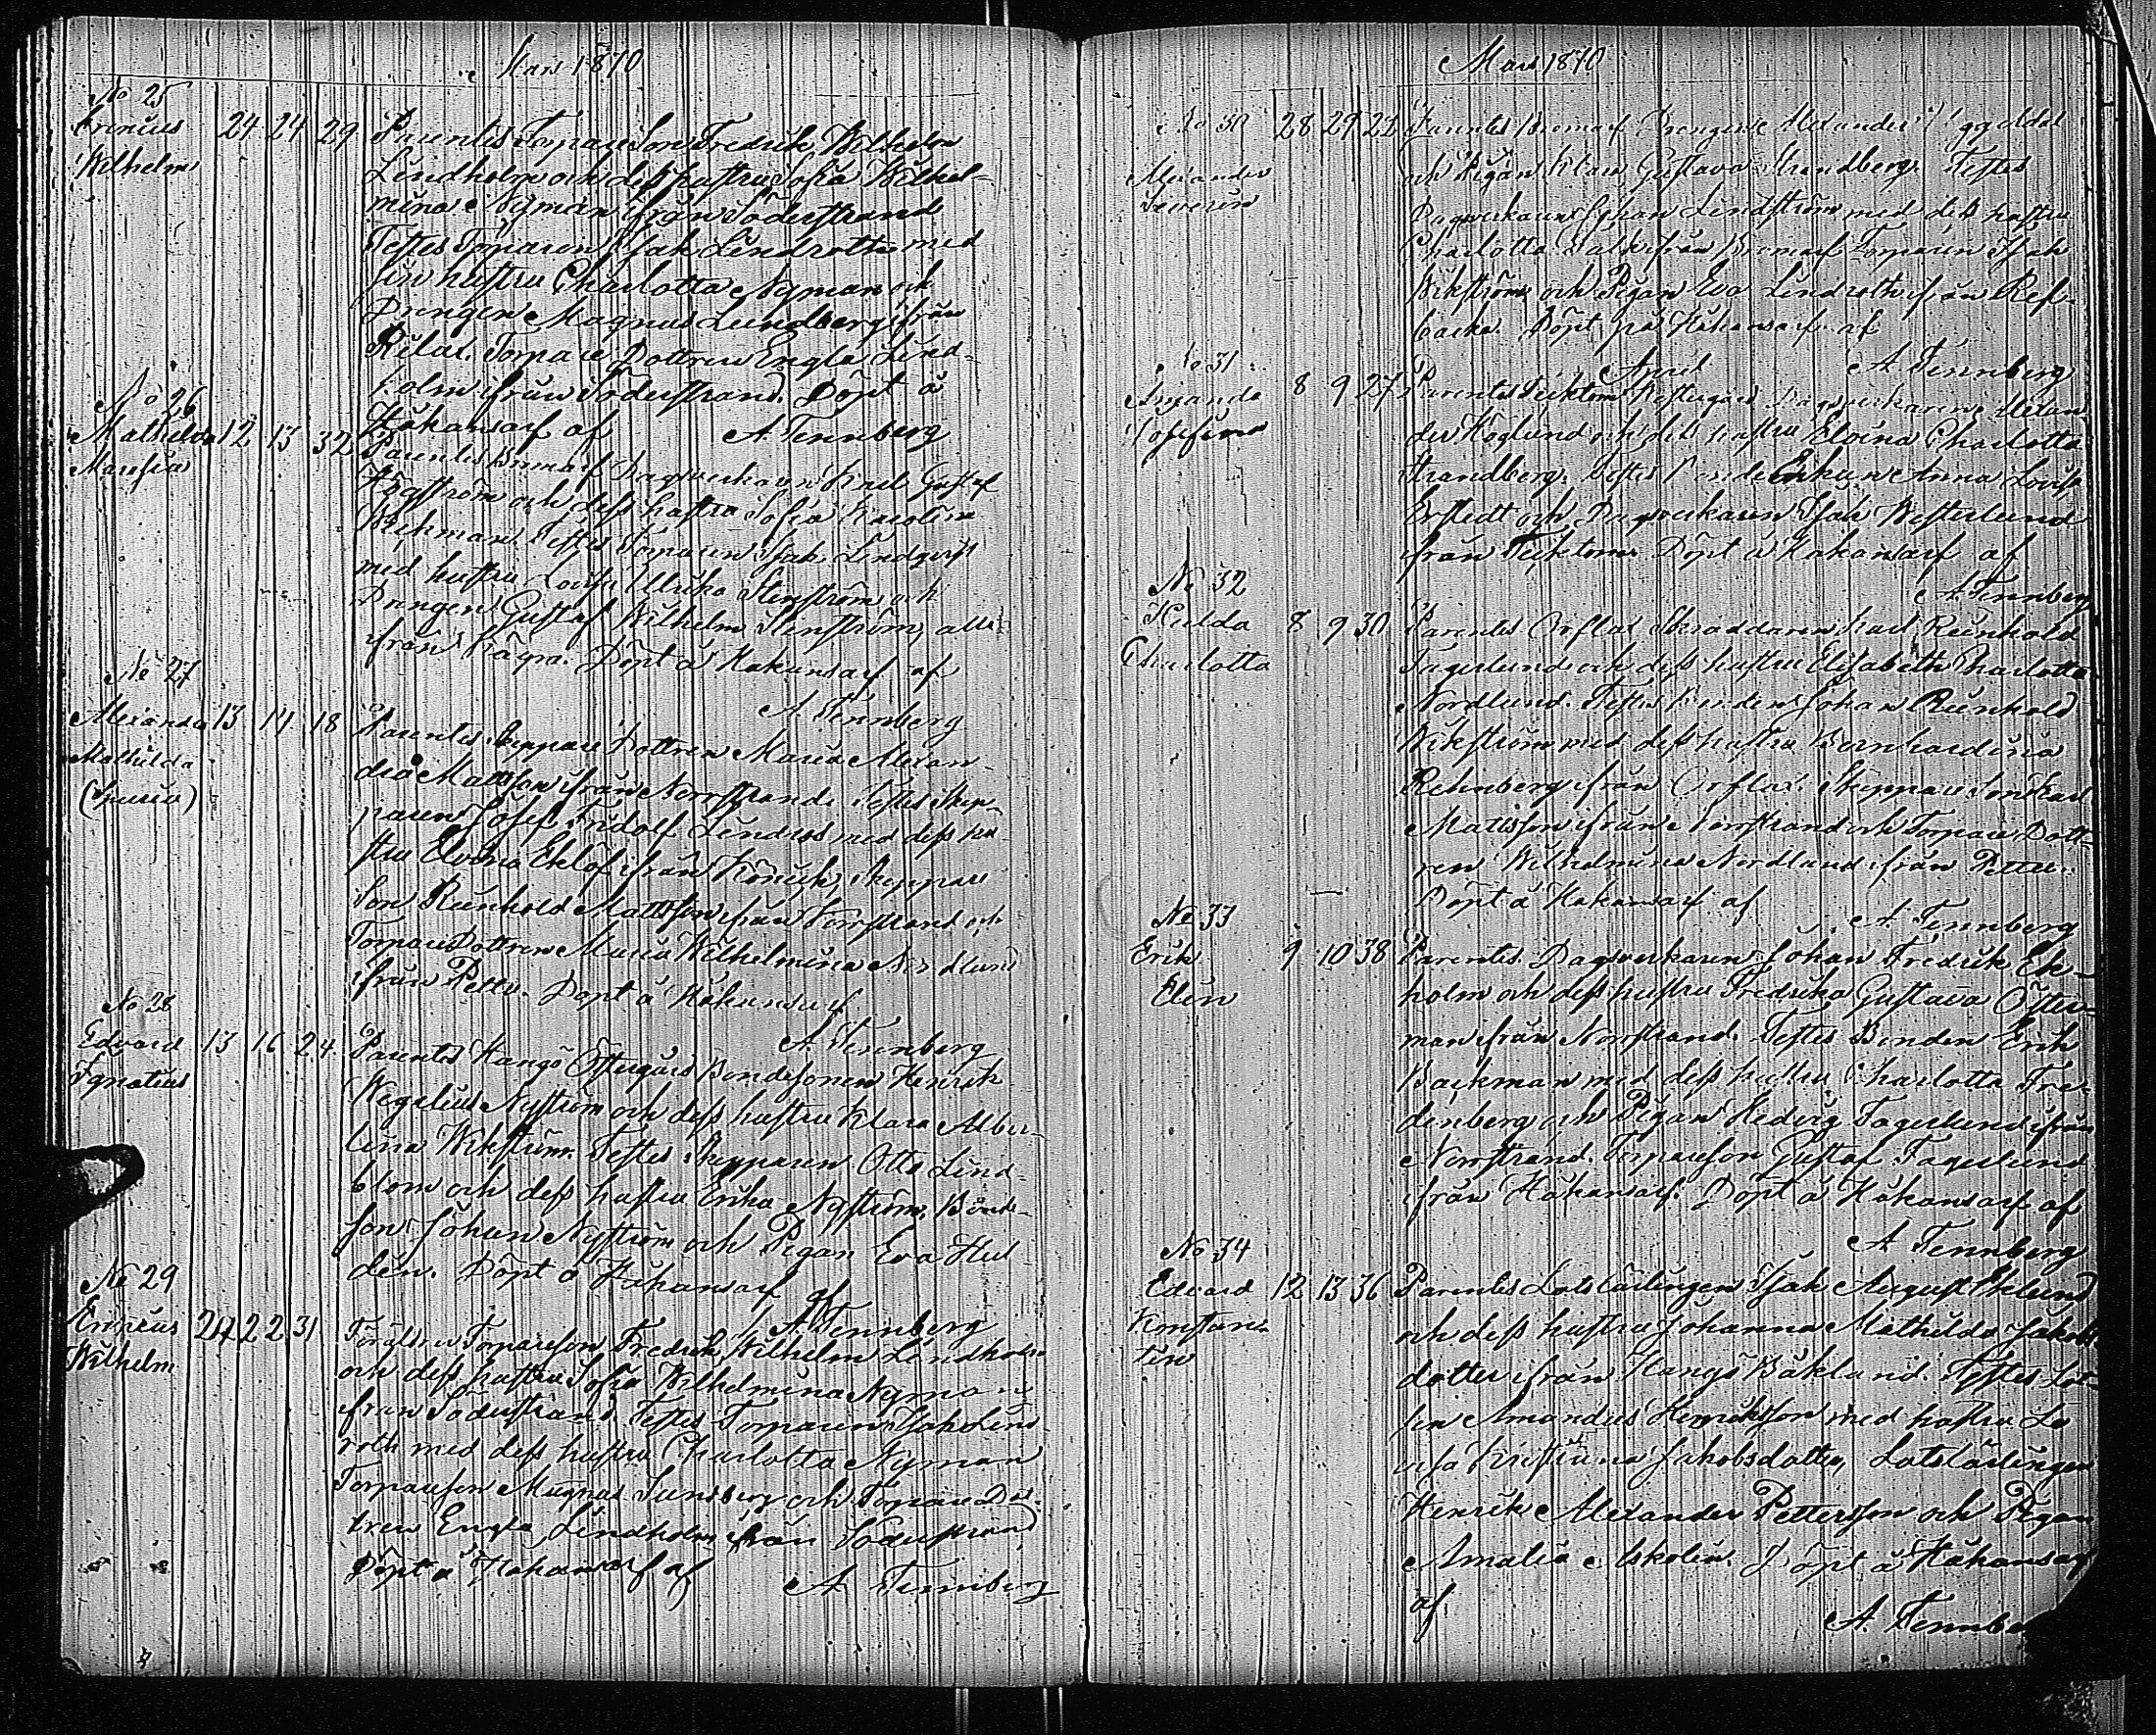 Mars 1870
No 25
Irenius 24 24 29 Parentes Torpare Son Fredrik Wilhelm
Wilhelm Lindholm och dess hustru Sofia Wilhel-
mina Nyman ifrån Söderstrand
Testes Torparen Isak Lindroth med
sin hustru Charlotta Nyman och
Drengen Magnus Lundberg ifrån
Rilax. Torpare Dottren Engla Lind-
holm ifrån Söderstrand. Döpt å
Håkansarf af A. Tennberg
No 26
Mathilda 12 13 32 Parentes Bromarf Dagsverkaren Karl Gustaf
Maresia Hägström och dess hustru Sofia Karolina
Wickman Testes Torparen Isak Lindqvist
med hustru Lovisa Ulrika Stenström och
Drengen Gustaf Wilhelm Stenström, alla
från Kågra. Döpt å Håkansarf af
A. Tennberg
No 27
Alexandra 13 14 18 Parentes Skeppare Dottren Maria Alexan-
Mathilda dra Mattsson ifrån Norrstrand. Testes Skep-
(Spuria) paren Josef Fridolf Lindros med dess hu-
stru Elvina Eklöf ifrån Skeppare
Son Reinhold Mattsson ifrån Norrstrand och
Torpare Dottren Maria Wilhelmina Nordlund
från Petter. Döpt å Håkansarf
A. Tennberg
No 28
Edvard 13 16 24 Parentes Hangö Östergård Bondesonen Henrik
Ignatius Wegelius Nyström och dess hustru Klara Alber-
tina Wikström. Testes Skepparen Otto Lind-
blom och dess hustru Erika Nyström, Bonde-
son Johan Nyström och Pigan Eva Hul
dén. Döpt å Håkansarf af
A. Tennberg
No 29
Erinius 24 2 2 31 Föräldrar Torpareson Fredrik Wilhelm Lindholm
Wilhelm och dess hustru Sofia Wilhelmina Nyman
ifrån Söderstrand Testes Torparen Isak Lind-
roth med dess hustru Charlotta Nyman
Torpareson Magnus Lundberg och Torpare Dot-
tren Engla Lindholm ifrån Söderstrand
Döpt å Håkansarf af A. Tennberg
Mars 1870
No 30 28 29 21 Parentes Bromarf Drengen Alexander
Alexander och Pigan Klara Gustava Strandberg. Testes
Severin Dagsverkaren Johan Lindström med dess hustru
Charlotta från Bromarf Torparen Isak
Wikström och Pigan Eva Lindroth ifrån Ref-
backa. Döpt på Håkansarf af
April A. Tennberg
No 31
Amanda 8 9 27 Parentes Täcktom Westergård Dagsverkaren Alexan-
Josefina der Höglund och dess hustru Elvina Charlotta
Strandberg. Testes Enkan Anna Lovisa
Erstedt och Dagsverkaren Isak Westerlund
från Täcktom. Döpt å Håkansarf af
A. Tennberg
No 32
Hulda 8 9 30 Parentes Orflax Skräddaren Karl Reinhold
Charlotta Fagerlund och dess hustru Elisabeth Charlotta
Nordlund. Testes Bonden Johan Reinhold
Wikström med dess hustru Bernhardina
Rehnberg ifrån Orflax. Skeppare Son Karl
Mattsson ifrån Norrstrand och Torpare Dott-
ren Wilhelmina Nordlund från Petter.
Döpt å Håkansarf af A. Tennberg
No 33
Erik 9 10 38 Parentes Dagsverkaren Johan Fredrik Ek-
Elin holm och dess hustru Fredrika Gustava Öster-
man ifrån Norrstrand. Testes Bonden Erik
Backman med dess hustru Charlotta Fre-
denberg och Pigan Hedvig Fagerlund ifrån
Norrstrand. Torpareson Gustaf Fagerlund
ifrån Håkansarf. Döpt å Håkansarf af
A. Tennberg
No 34
Edvard 12 13 36 Parentes Lots Lärlingen Isak August Eklund
Konstan- och dess hustru Johanna Mathilda Jakobs
tin dotter ifrån Hangö Båkland. Testes Lot-
sen Amandus Henriksson med hustru Lo
visa Kristina Jakobsdotter, Lotslärlingen
Henrik Alexander Pettersson och Pigan
Amalia Askolin. Döpt å Håkansarf
af
A. Tennbe